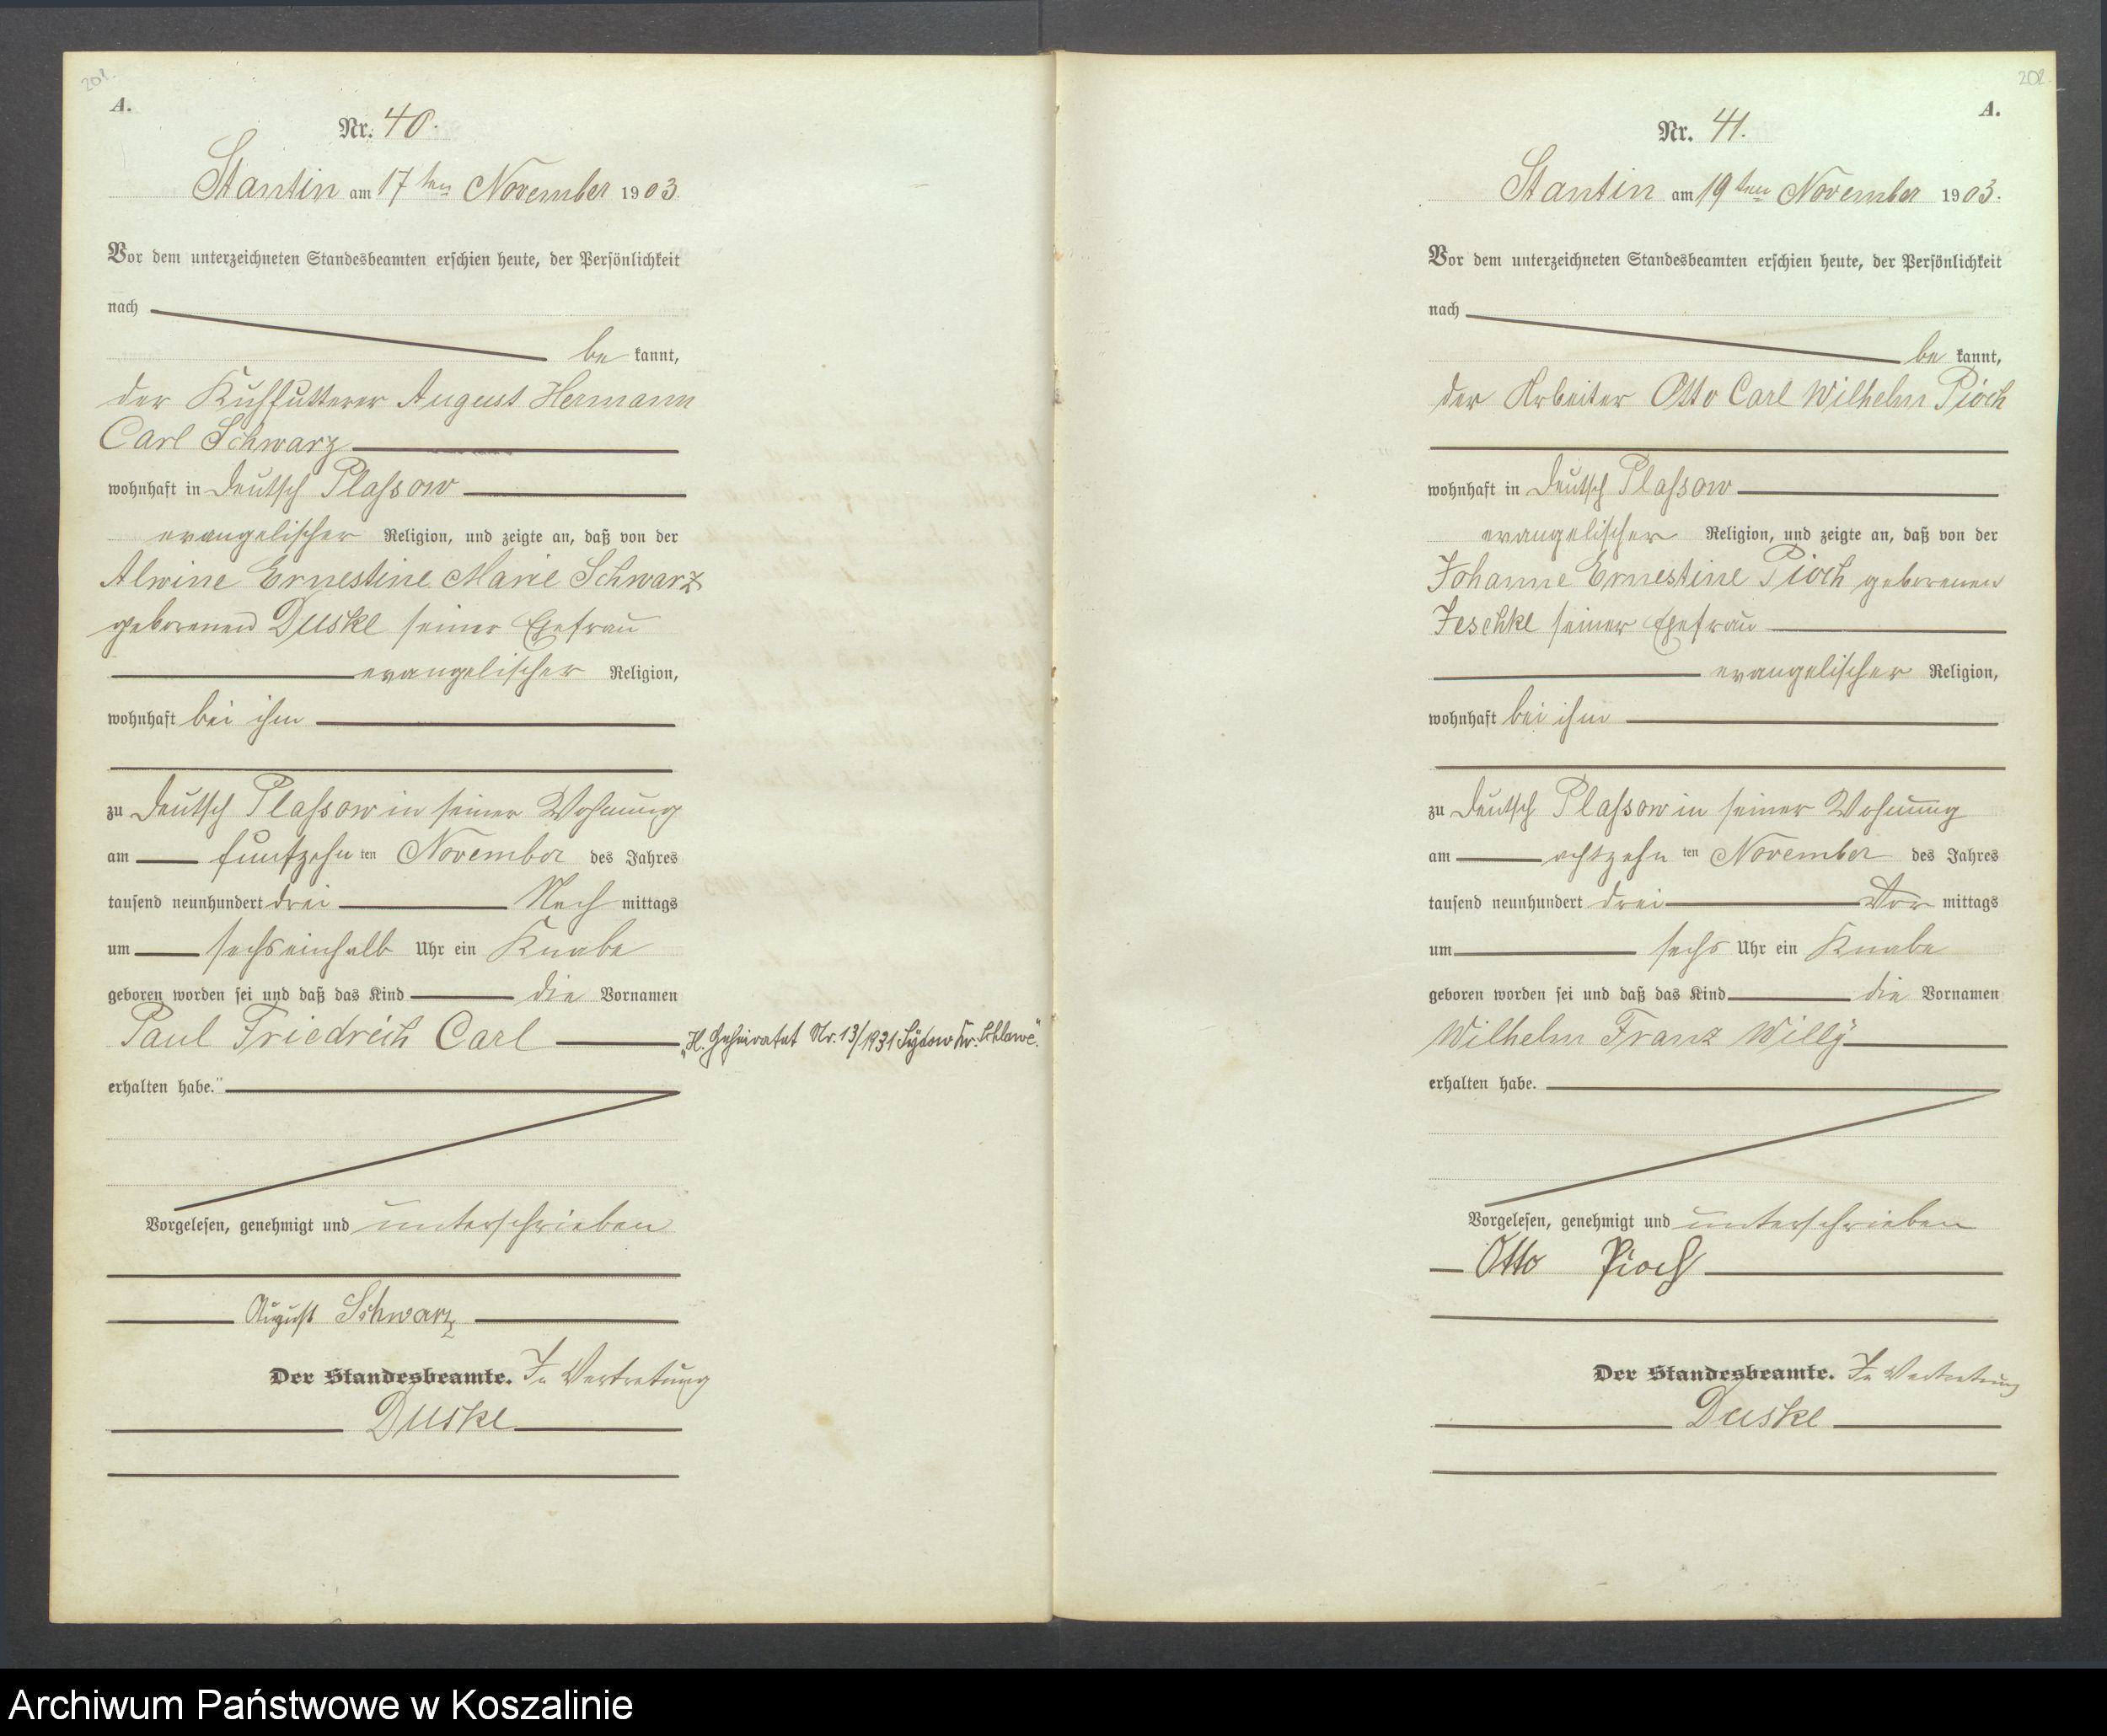 201.
A.
Nr. 40.
Stantin am 17ten November 1903.
Vor dem unterzeichneten Standesbeamten erschien heute, der Persönlichkeit
nach
be kannt,
der Kuhfütterer August Hermann
Carl Schwarz
wohnhaft in Deutsch Plassow
evangelischer Religion, und zeigte an, daß von der
Alwine Ernestine Marie Schwarz
geborenen Duske seiner Ehefrau
evangelischer Religion,
wohnhaft bei ihm
zu Deutsch Plassow in seiner Wohnung
am funfzehn ten November des Jahres
tausend neunhundert drei Nach mittags
um sechseinhalb Uhr ein Knabe
geboren worden sei und daß das Kind die Vornamen
Paul Friedrich Carl
„H. Geheiratet Nr. 13/1931 Sydow Kr. Schlawe“.
erhalten habe."
Vorgelesen, genehmigt und unterschrieben
August Schwarz
Der Standesbeamte. In Vertretung
Duske
202.
A.
Nr. 41.
Stantin am 19ten November 1903.
Vor dem unterzeichneten Standesbeamten erschien heute, der Persönlichkeit
nach
be kannt,
der Arbeiter Otto Carl Wilhelm Pioch
wohnhaft in Deutsch Plassow
evangelischer Religion, und zeigte an, daß von der
Johanne Ernestine Pioch geborenen
Jeschke seiner Ehefrau
evangelischer Religion,
wohnhaft bei ihm
zu Deutsch Plassow in seiner Wohnung
am achtzehn ten November des Jahres
tausend neunhundert drei Vor mittags
um sechs Uhr ein Knabe
geboren worden sei und daß das Kind die Vornamen
Wilhelm Franz Willÿ
erhalten habe.
Vorgelesen, genehmigt und unterschrieben
Otto Pioch
Der Standesbeamte. In Vertretung
Duske
Archiwum Państwowe w Koszalinie